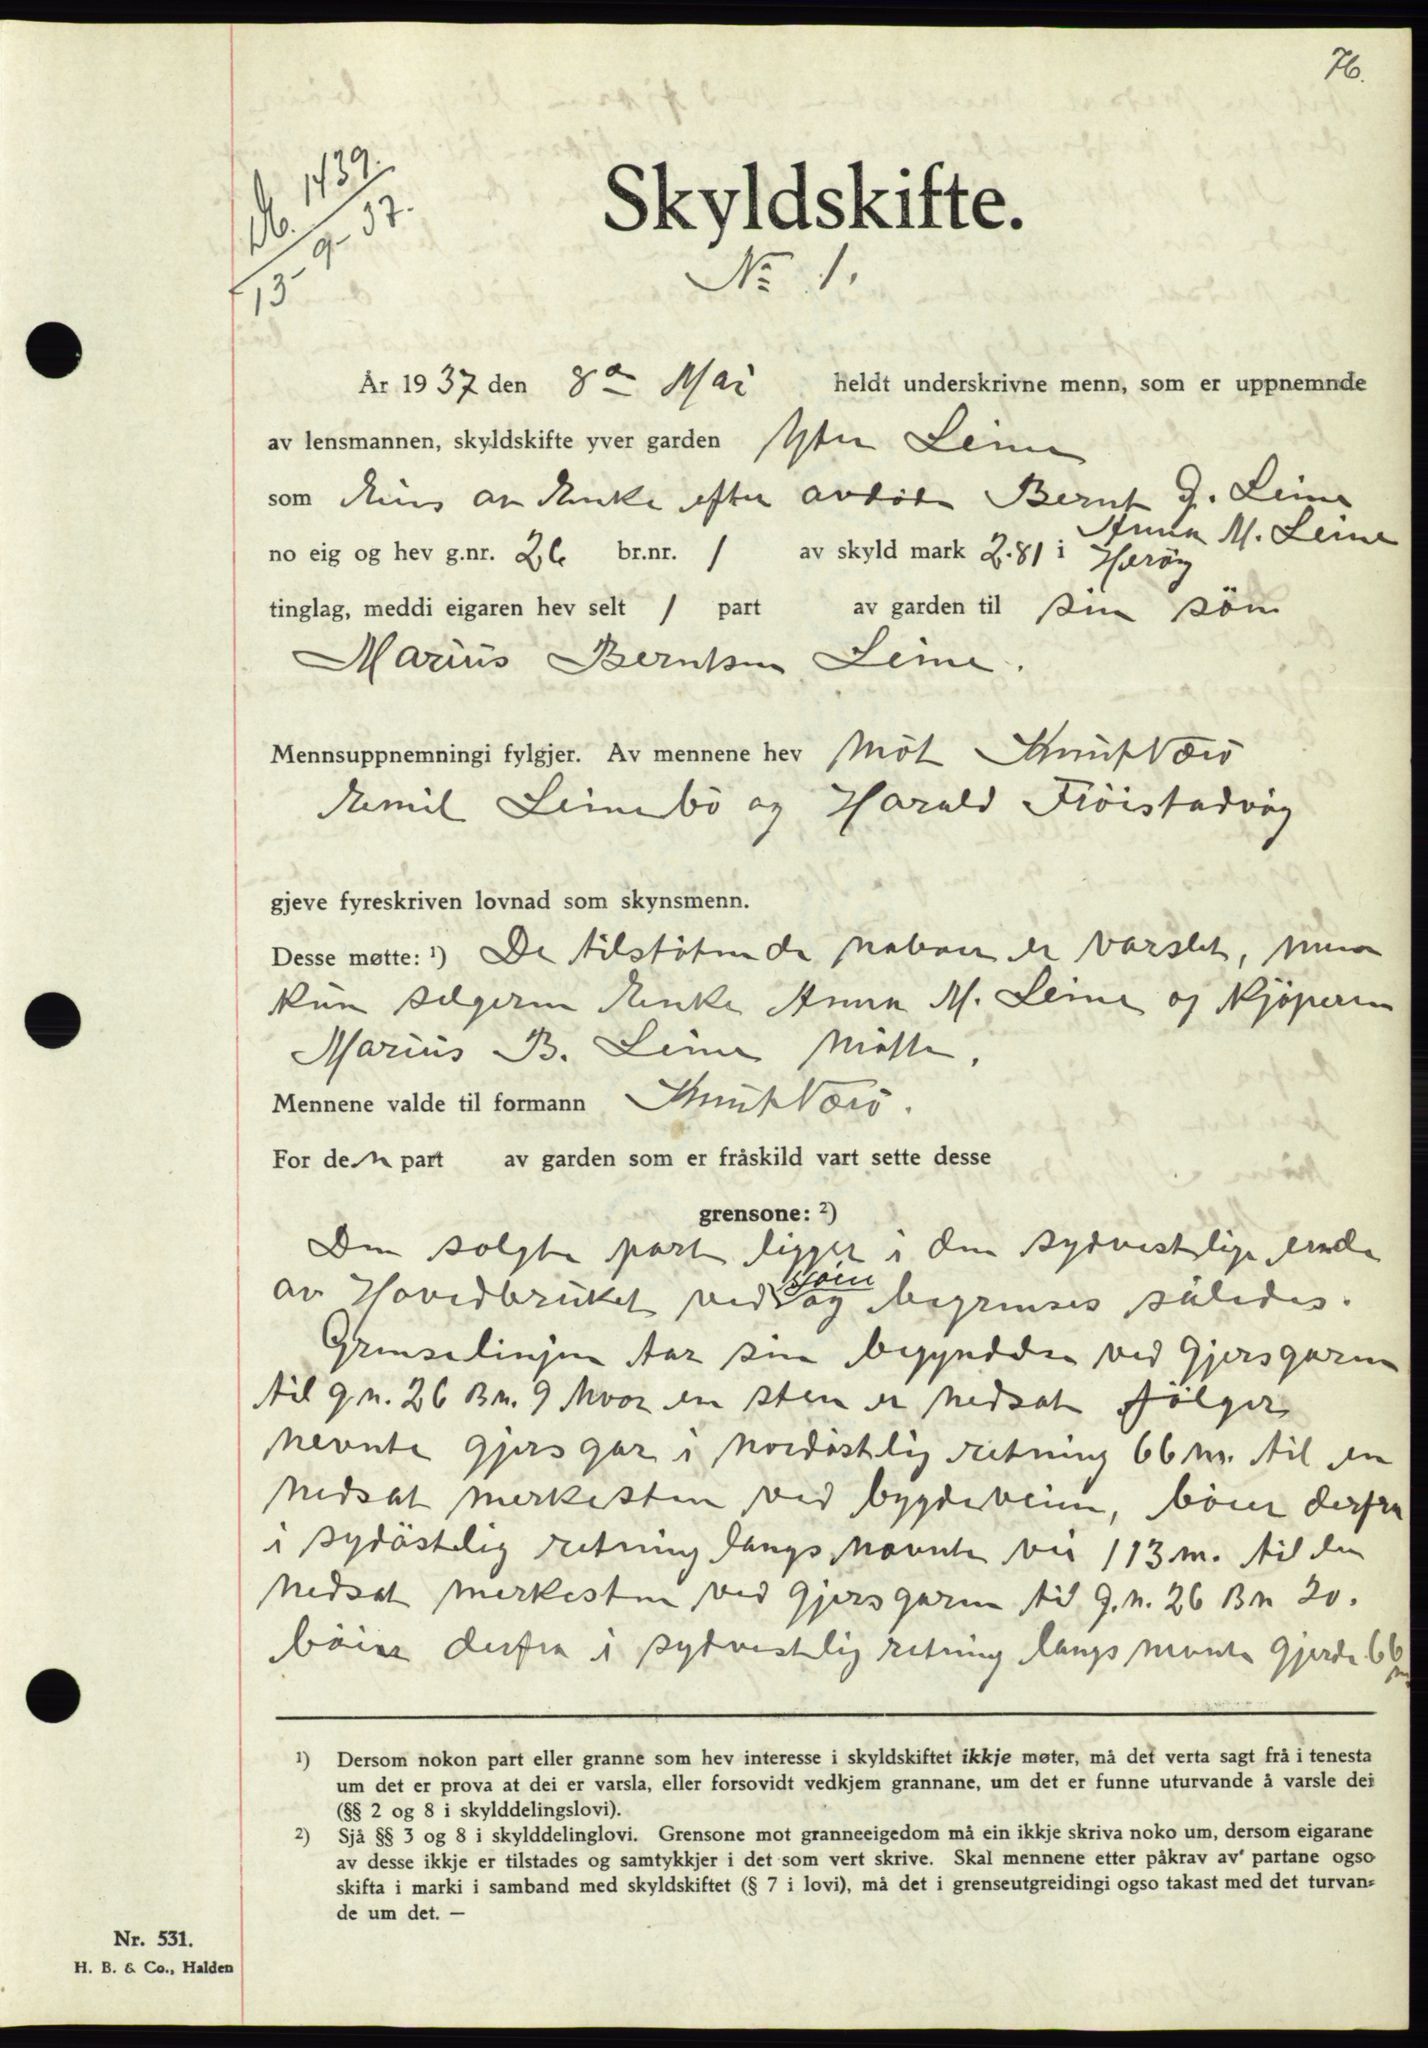 76.
Nb. 1439.
13-9-37.
Skyldskifte.
No 1.
År 1937 den 8de Mai heldt underskrivne menn, som er uppnemnde
av lensmannen, skyldskifte yver garden Ytre Leine
som Eies av Enke efter avdöde Bernt J. Leine
Anna M. Leine
no eig og hev g.nr. 26 br.nr. 1 av skyld mark 2.81 i Herøy
tinglag, meddi eigaren hev selt 1 part av garden til sin sön
Marius Berntsen Leine.
Mennsuppnemningi fylgjer. Av mennene hev Möt Knut Voldsund
Emil Leinebö og Harald Fröistadvåg
gjeve fyreskriven lovnad som skynsmenn.
Desse møtte: ¹) De tilstötende naboer er varslet, men
kun selgeren Enke Anna M. Leine og Kjöperen
Marius B. Leine Mötte.
Mennene valde til formann Knut
For den part av garden som er fråskild vart sette desse
grensone: ²)
Den solgte part ligger i den sydvestlige ende
av Hovedbruket ved sjöen og begrenses således.
Grenselinjen tar sin begyndelse ved Gjersgaren
til g n. 26 Bn. 9 hvor en sten er nedsat fölger
nevnte gjersgar i nordöstlig retning 66 m. til en
nedsat merkesten ved bygdeveien, böier derfra
i sydöstlig retning langs nevnte vei 113 m. til en
nedsat merkesten ved gjersgaren til g.n. 26 Bn 20.
böier derfra i sydvestlig retning langs nevnte gjerde 66 m
¹) Dersom nokon part eller granne som hev interesse i skyldskiftet ikkje møter, må det verta sagt frå i tenesta
um det er prova at dei er varsla, eller forsovidt vedkjem grannane, um det er funne uturvande å varsle dei
(§§ 2 og 8 i skylddelingslovi).
²) Sjå §§ 3 og 8 i skylddelinglovi. Grensone mot granneeigedom må ein ikkje skriva noko um, dersom eigarane
av desse ikkje er tilstades og samtykkjer i det som vert skrive. Skal mennene etter påkrav av partane ogso
skifta i marki i samband med skyldskiftet (§ 7 i lovi), må det i grenseutgreidingi ogso takast med det turvan-
de um det. —
Nr. 531.
H. B. & Co., Halden